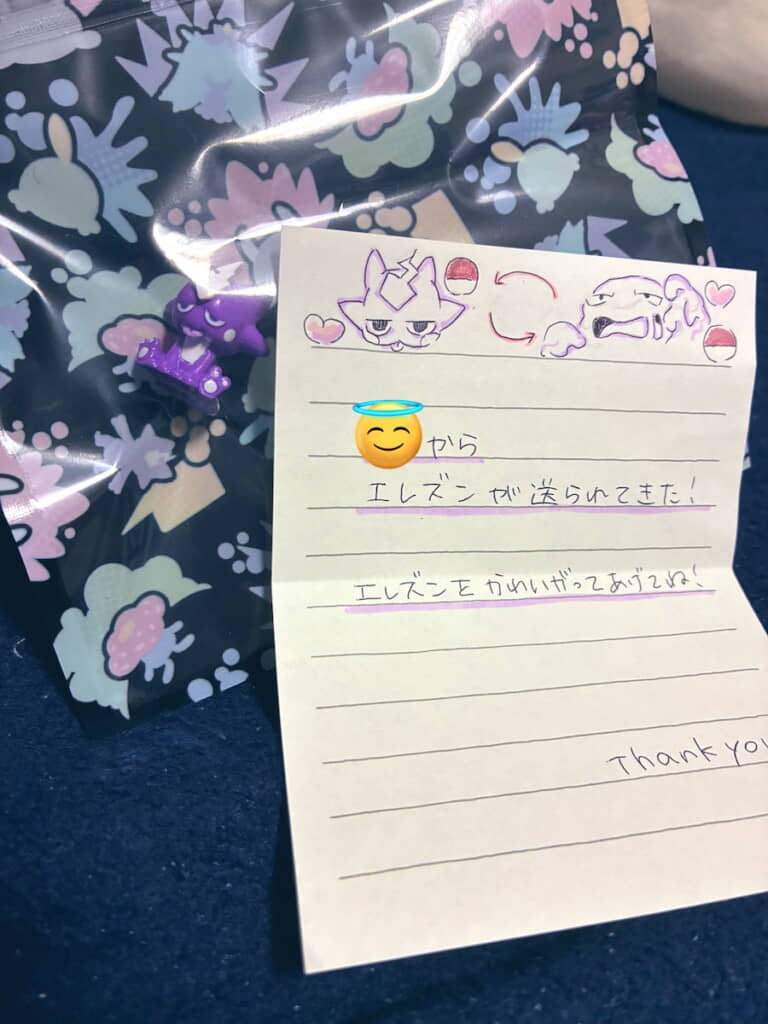 から
エレズンが送られてきた!
エレズンを かわいがってあげてね!
Thank you